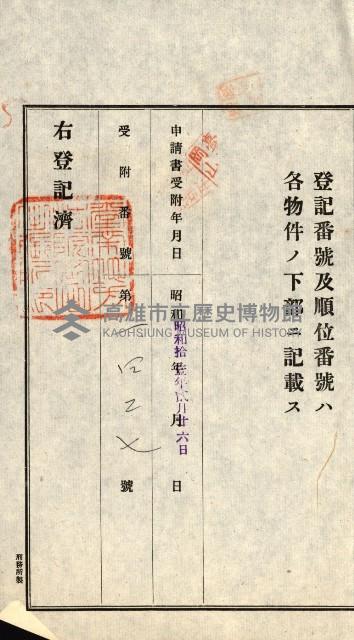 登記番號及順位番號ハ
各物件ノ下部ニ記載ス
申請書受附年月日
昭和 年 月 日
昭和拾壹年貳月廿六日
受附番號
第 四二七 號
右登記濟
刑務所製
高雄市立歷史博物館
KAOHSIUNG MUSEUM OF HISTORY